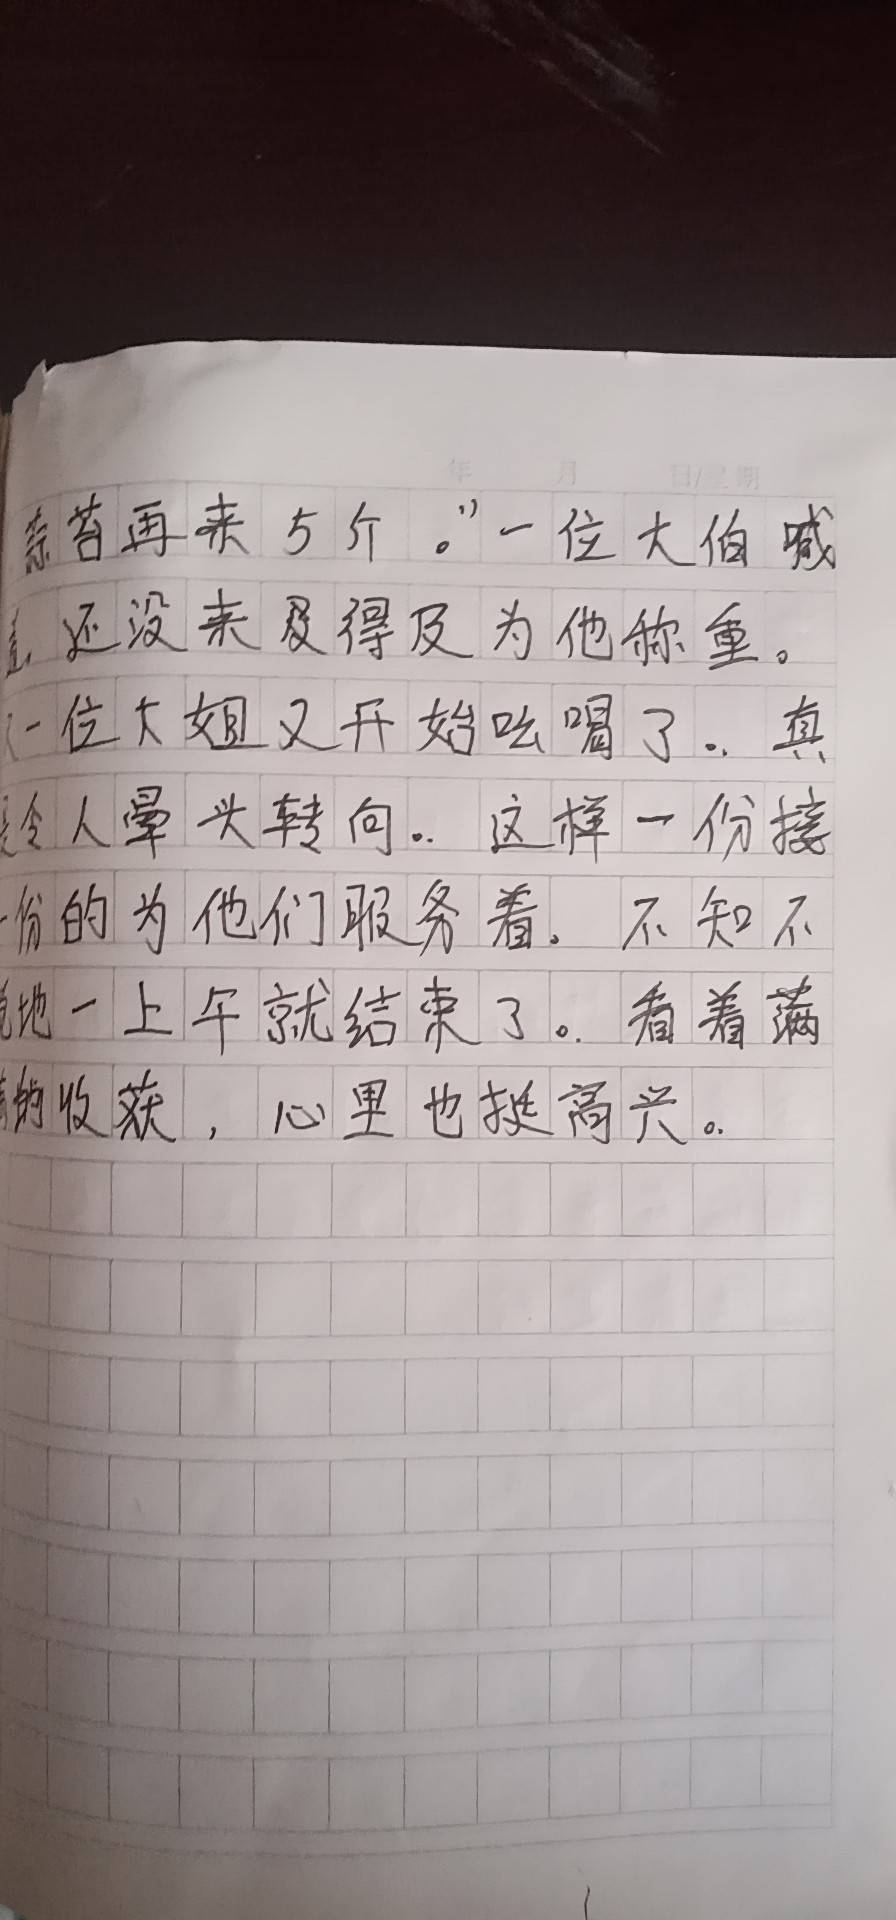 年 月 日/星期
蒜苔再来5个。"一位大伯喊
着,还没来及得及为他称重。
又一位大姐又开始吆喝了。真
是令人晕头转向。这样一份接
一份的为他们服务着。不知不
觉地一上午就结束了。看着满
满的收获,心里也挺高兴。